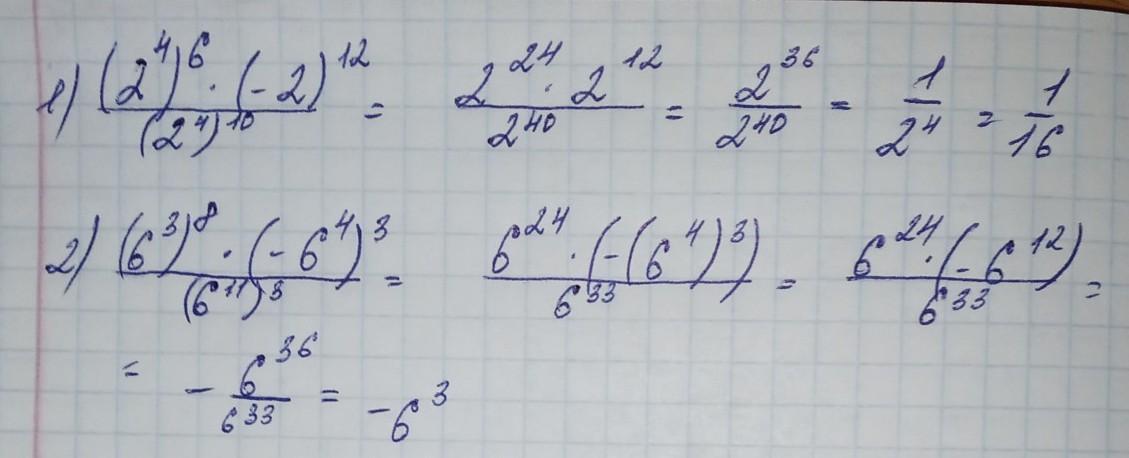 1) ((2^4)^6 · (-2)^12)/(2^4)^10 = (2^24 · 2^12)/2^40 = 2^36/2^40 = 1/2^4 = 1/16
2) ((6^3)^8 · (-6^4)^3)/(6^11)^3 = (6^24 · (-(6^4)^3))/6^33 = (6^24 · (-6^12))/6^33 =
= - 6^36/6^33 = -6^3